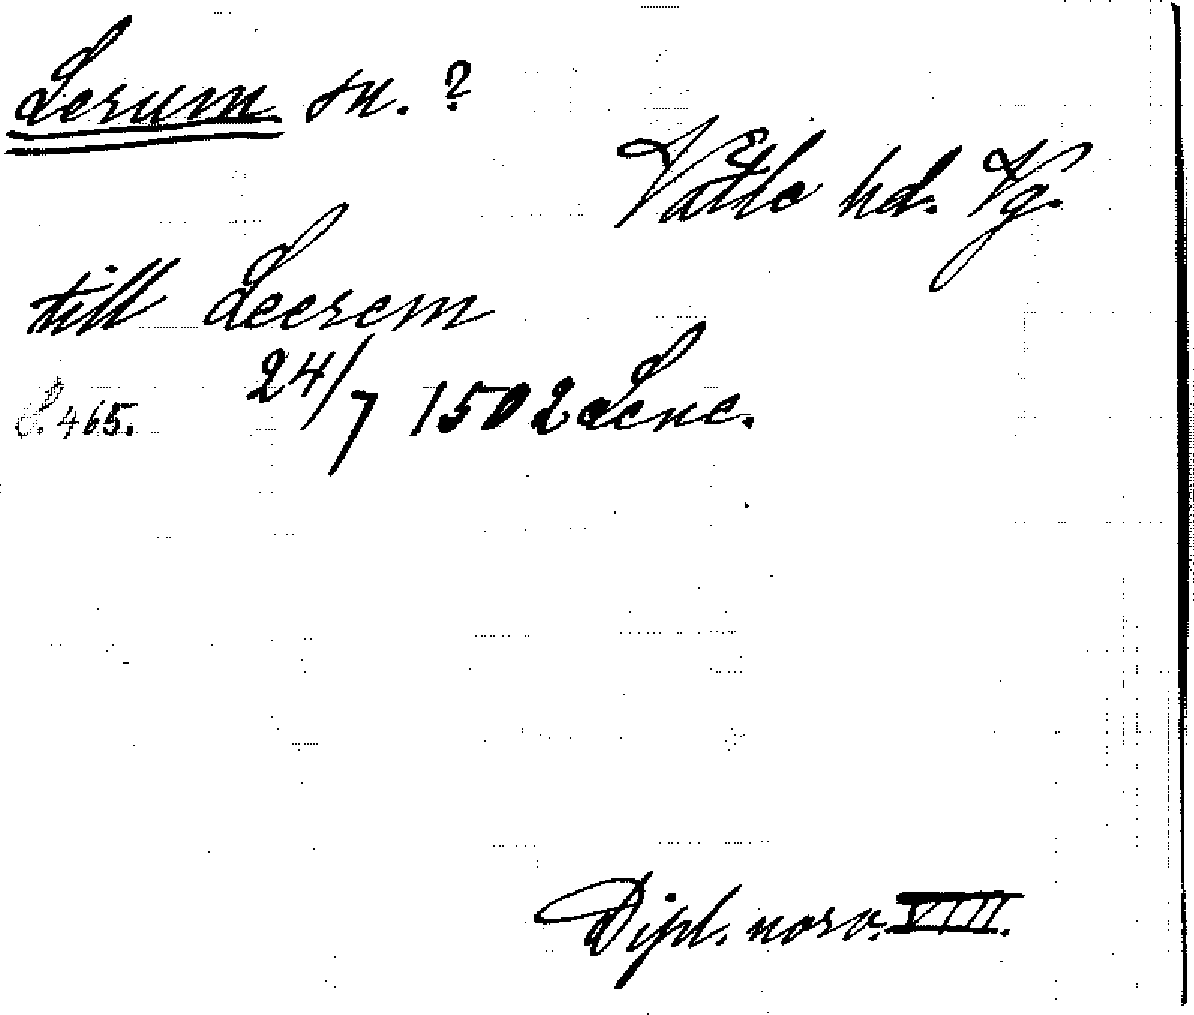 Lerum sn. ?
Vättle hd. Vg.
till Leerem
S. 465. 24/7 1502 Lene.
Dipl. norv. VIII.